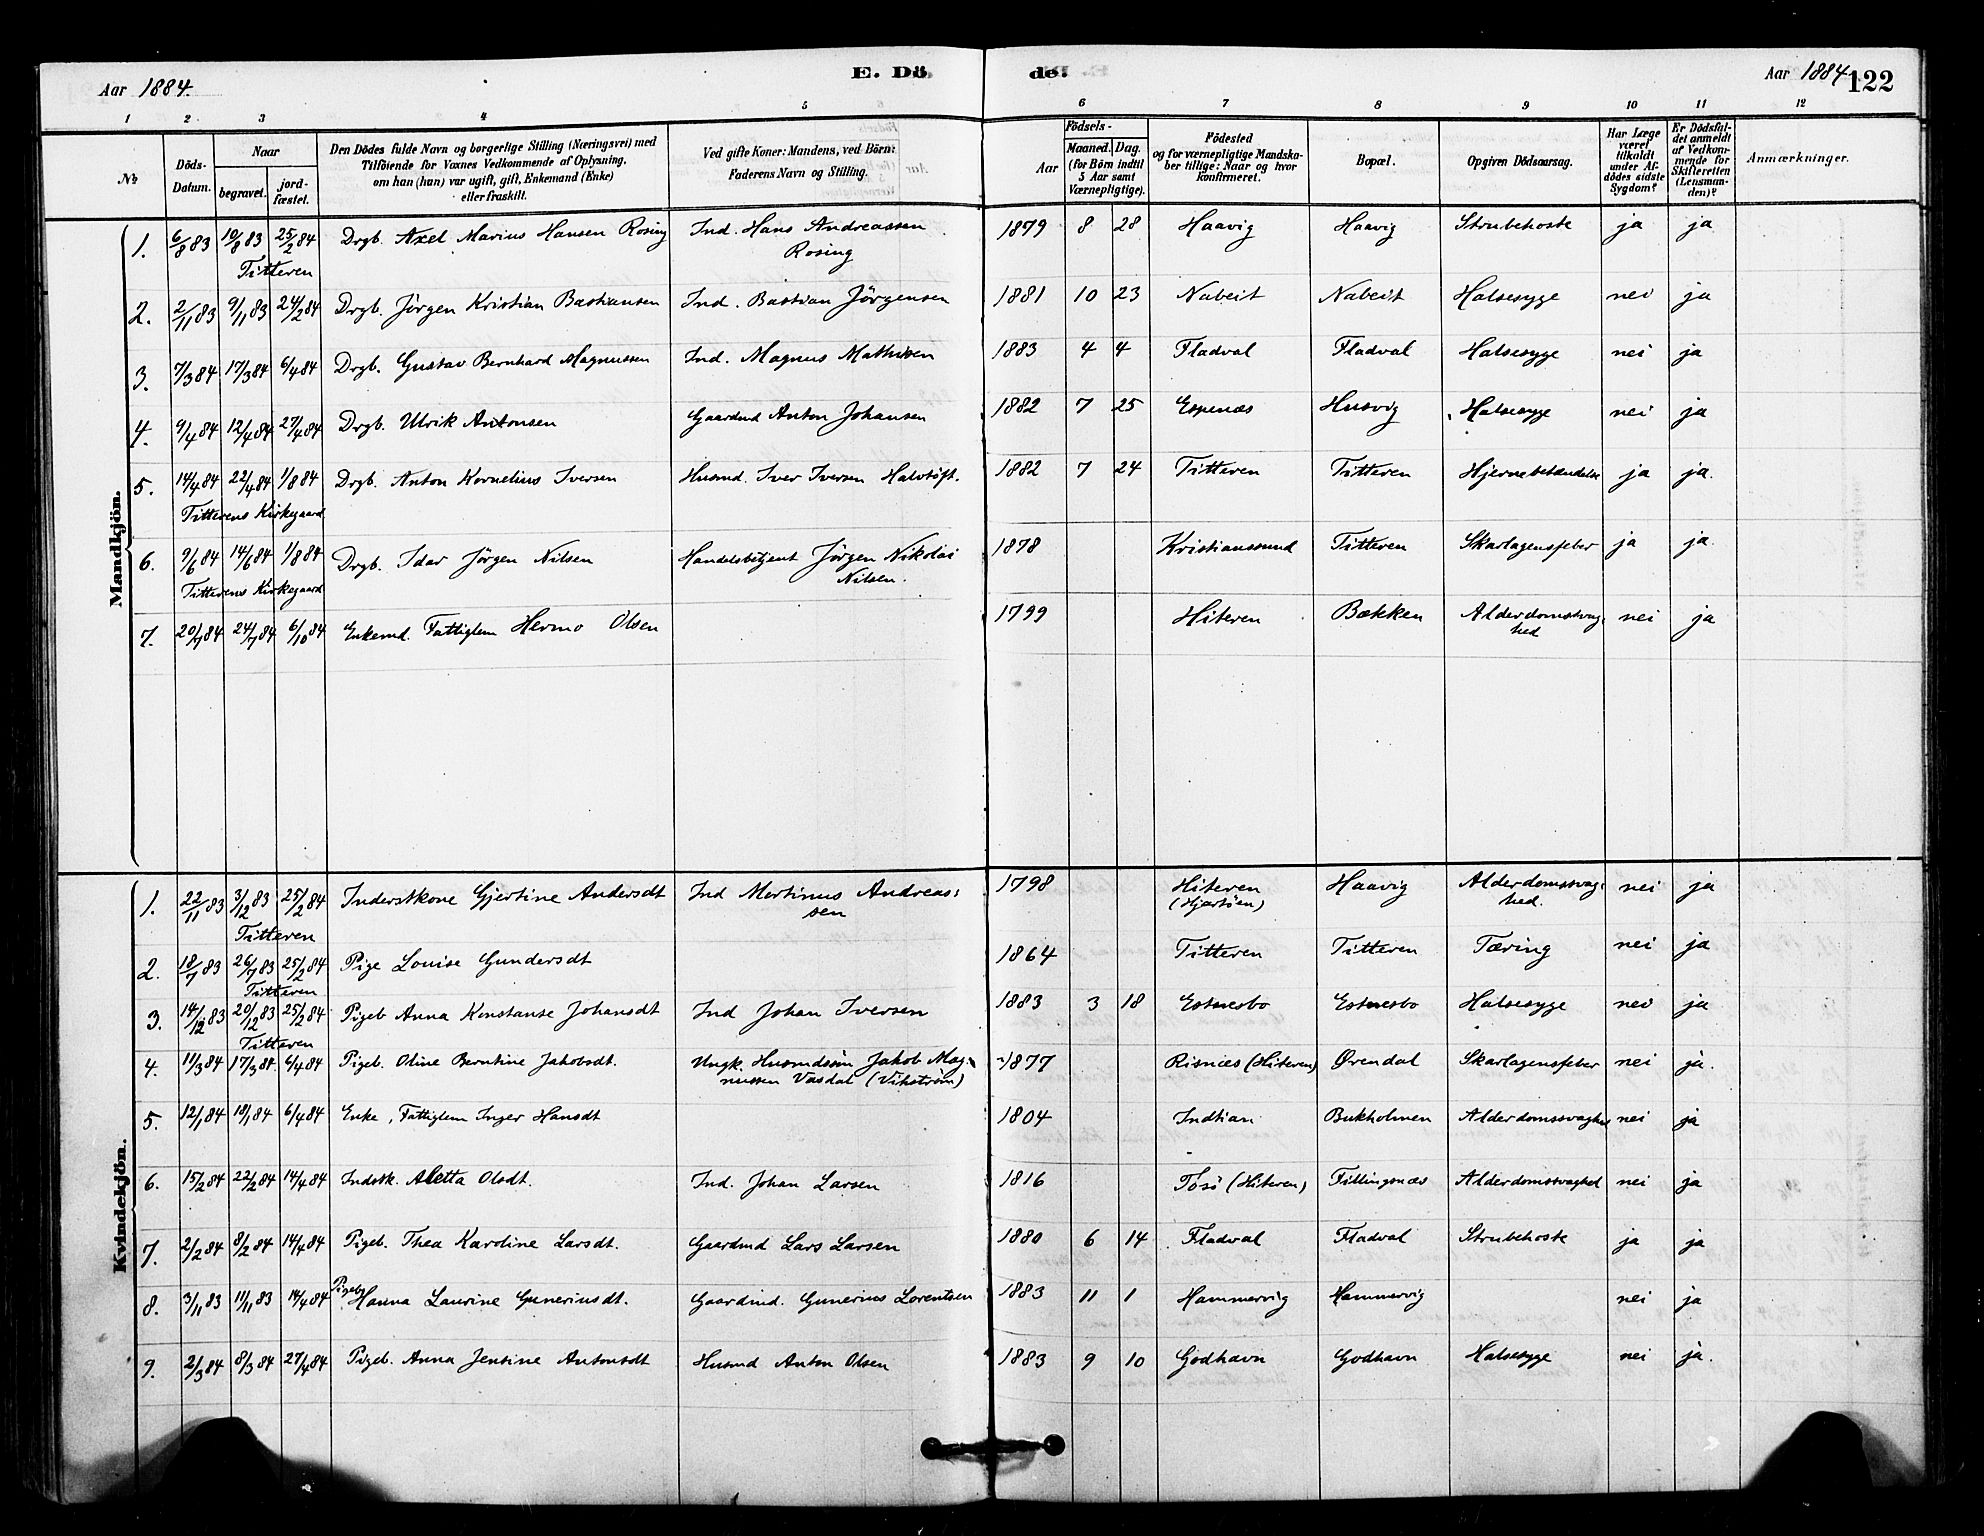 Aar 1884.
E. Dö
de.
Aar 1884
122
1 2 3 4 5 6 7 8 9 10 11 12
№
Döds-
Datum.
Naar
begravet.
jord-
fæstet.
Den Dödes fulde Navn og borgerlige Stilling (Næringsvei) med
Tilföiende for Voxnes Vedkommende af Oplysning,
om han (hun) var ugift, gift, Enkemand (Enke)
eller fraskilt.
Ved gifte Koner: Mandens, ved Börn:
Faderens Navn og Stilling.
Födsels-
Aar
Maaned. Dag.
(for Börn indtil
5 Aar samt
Værnepligtige).
Födested
og for værnepligtige Mandska-
ber tillige: Naar og hvor
konfirmeret.
Bopæl.
Opgiven Dödsaarsag.
Har Læge
været
tilkaldt
under Af-
dödes sidste
Sygdom?
Er Dödsfal-
det anmeldt
af Vedkom-
mende for
Skifteretten
(Lensman-
den)?
Anmærkninger.
Mandkjön.
1. 6/8 83 10/8 83 25/2 84 Drgb. Axel Marius Hansen Rosing Ind. Hans Andreassen 1879 8 28 Haavig Haavig Strubehoste ja ja
Titteren Rosing
2. 2/11 83 9/11 83 24/2 84 Drgb. Jørgen Kristian Bastiansen Ind. Bastian Jørgensen 1881 10 23 Nabeit Nabeit Halsesyge nei ja
3. 7/3 84 17/3 84 6/4 84 Drgb. Gustav Bernhard Magnussen Ind. Magnus Mathisen 1883 4 4 Fladval Fladval Halsesyge nei ja
4. 9/4 84 12/4 84 27/4 84 Drgb. Ulrik Antonsen Gaardmd Anton Johansen 1882 7 25 Espenæs Husvig Halsesyge nei ja
5. 14/4 84 22/4 84 1/8 84 Drgb. Anton Kornelius Iversen Husmd. Iver Iversen Halvtöft. 1882 7 24 Titteren Titteren Hjernebetændelse ja ja.
Titterens Kirkegaard
6. 9/6 84 14/6 84 1/8 84 Drgb. Idar Jørgen Nilsen Handelsbetjent Jørgen Nikolai 1878 Kristianssund Titteren Skarlagensfeber ja ja.
Titterens Kirkegaard Nilsen.
7. 20/7 84 24/7 84 6/10 84 Enkemd. Fattiglem Hermo Olsen 1799 Hiteren Bækken Alderdomssvag- nei ja
hed
Kvindekjön.
1. 22/11 83 3/12 83 25/2 84 Inderstkone Gjertine Andersdt Ind Martinus Andreas: 1798 Hiteren Haavig Alderdomssvag: nei ja
Titteren sen (Hjertøen) hed.
2. 18/7 83 26/7 83 25/2 84 Pige Louise Gundersdt 1864 Titteren Titteren Tæring nei ja
Titteren
3. 14/12 83 20/12 83 25/2 84 Pigeb Anna Konstanse Johansdt Ind Johan Iversen 1883 3 18 Estnesbo Estnesbo Halsesyge nei ja
Titteren
4. 11/3 84 17/3 84 6/4 84 Pigeb. Oline Berntine Jakobsdt. Ungk. Husmdssøn Jakob Mag- 1877 Risnæs (Hiteren) Ørendal Skarlagensfeber nei ja.
nussen Vasdal (Vikstrøm)
5. 12/1 84 18/1 84 6/4 84 Enke, Fattiglem Inger Hansdt 1804 Indtian Bukholmen Alderdomssvaghed nei ja
6. 15/2 84 22/2 84 14/4 84 Indstk. Aletta Olsdt. Ind. Johan Larsen 1816 Tösö (Hiteren) Fillingsnæs Alderdomssvaghed nei ja
7. 2/2 84 8/2 84 14/4 84 Pigeb. Thea Karoline Larsdt. Gaardmd Lars Larsen 1880 6 14 Fladval Fladval Strubehoste ja ja
8. 3/11 83 11/11 83 14/4 84 Pigeb. Hanna Laurine Guneriusdt. Gaardmd. Gunerius Lorentsen 1883 11 1 Hammervig Hammervig nei ja
9. 2/3 84 8/3 84 27/4 84 Pigeb. Anna Jensine Antonsdt Husmd Anton Olsen 1883 9 10 Godhavn Godhavn Halsesyge nei ja.